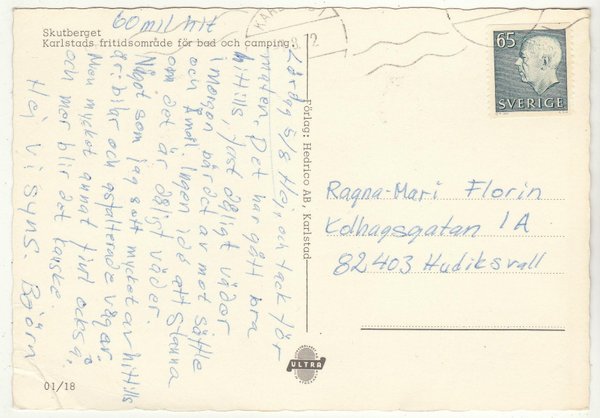 60 mil hit
Skutberget
Karlstads fritidsområde för bad och camping.
Lördag 5/8 Hej, och tack för
maten. Det har gått bra
hittills fast dåligt väder
i morgon bär det av mot Säffle
och Åmål. Ingen idé att stanna
om det är dåligt väder.
Något som jag sett mycket av hittills
är: bilar och asfalterade vägar.
Men mycket annat fint också,
och mer blir det kanske.
Hej vi syns. Björn
Förlag: Hedrico AB, Karlstad
65
SVERIGE
Ragna-Mari Florin
Kolhagsgatan 1A
82403 Hudiksvall
ULTRA
01/18